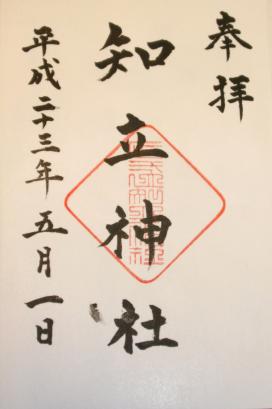 奉拝
知立神社
平成二十三年五月一日